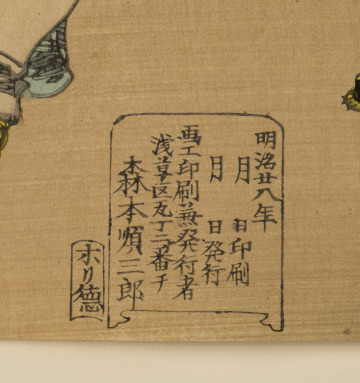 明治廿八年
月　日印刷
月　日発行
画工印刷兼発行者
浅草区瓦丁二番チ
森本順三郎
ホリ德